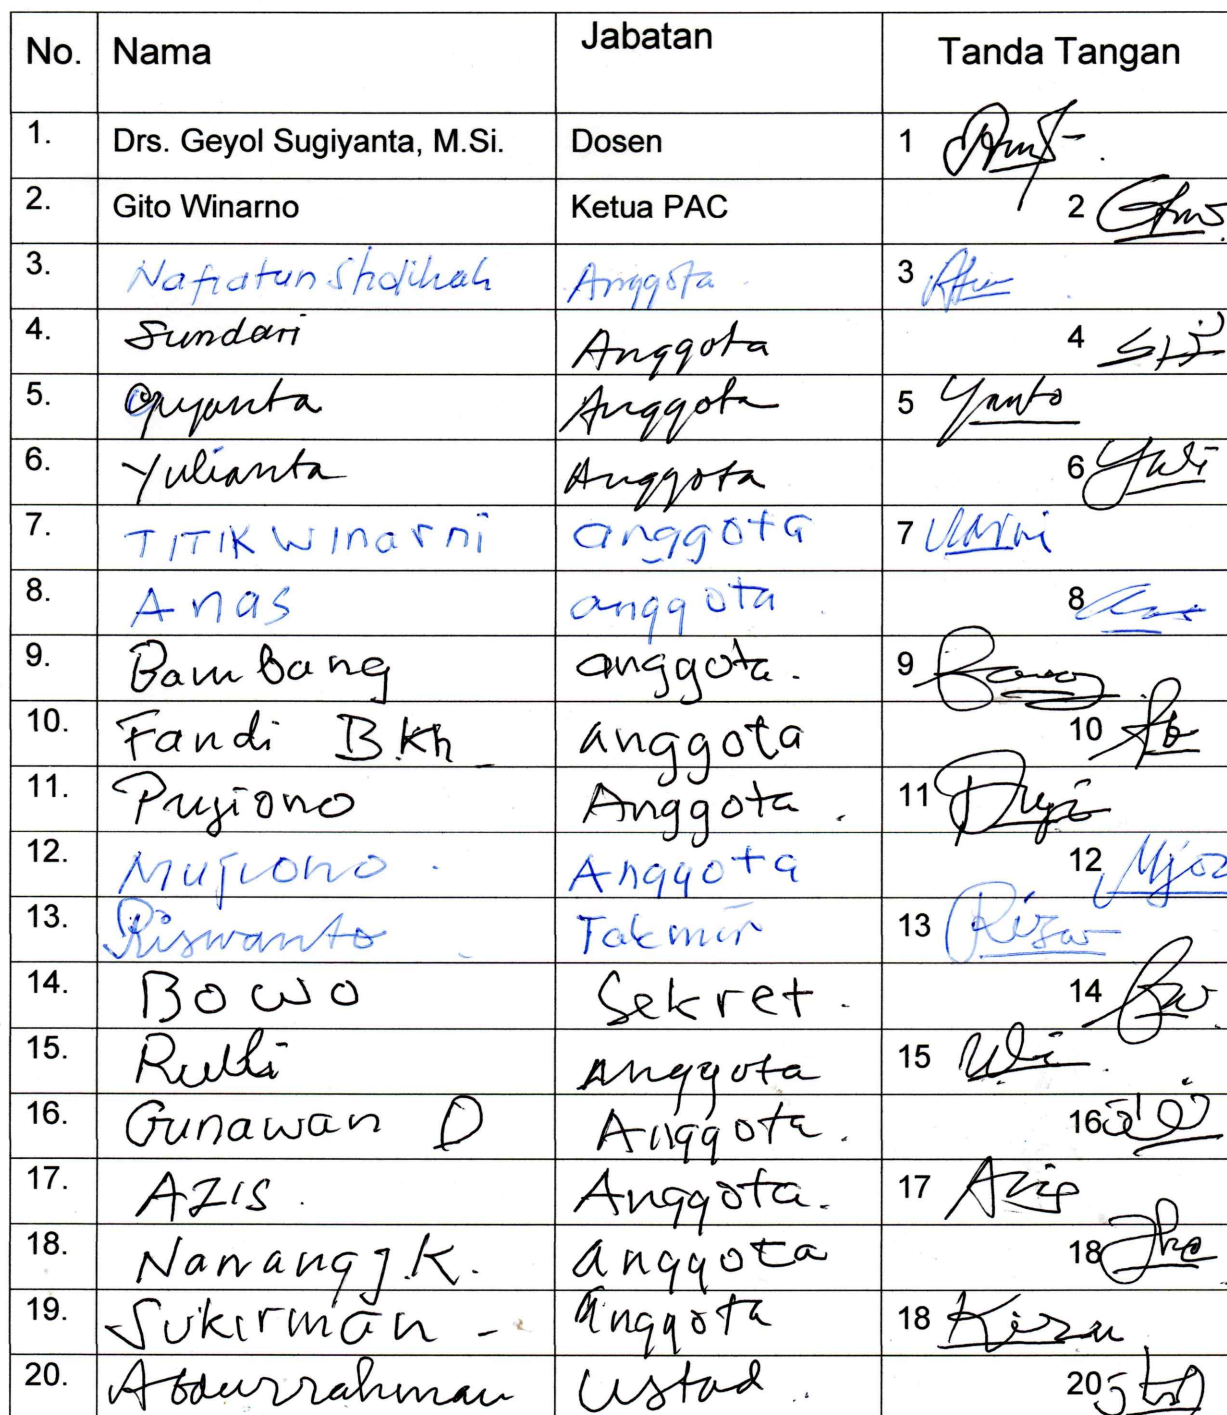 No. Nama Jabatan Tanda Tangan
1. Drs. Geyol Sugiyanta, M.Si. Dosen 1
2. Gito Winarno Ketua PAC 2
3. Nafiatun Sholihah Anggota 3
4. Sundari Anggota 4
5. Anggota 5 Yanto
6. Yulianta Anggota 6 Yuli
7. TITIK WInarni anggota 7
8. Anas anggota 8
9. Bambang anggota. 9
10. Fandi B.Kh anggota 10
11. Pujiono Anggota. 11
12. Mujiono. Anggota 12
13. Riswanto Takmir 13
14. BOWO Sekret. 14
15. Rulli anggota 15
16. Gunawan D Anggota. 16
17. AZIS. Anggota. 17 Azis
18. Nanang J.K. anggota 18
19. Sukirman - anggota 18
20. Abdurrahman Ustad. 20